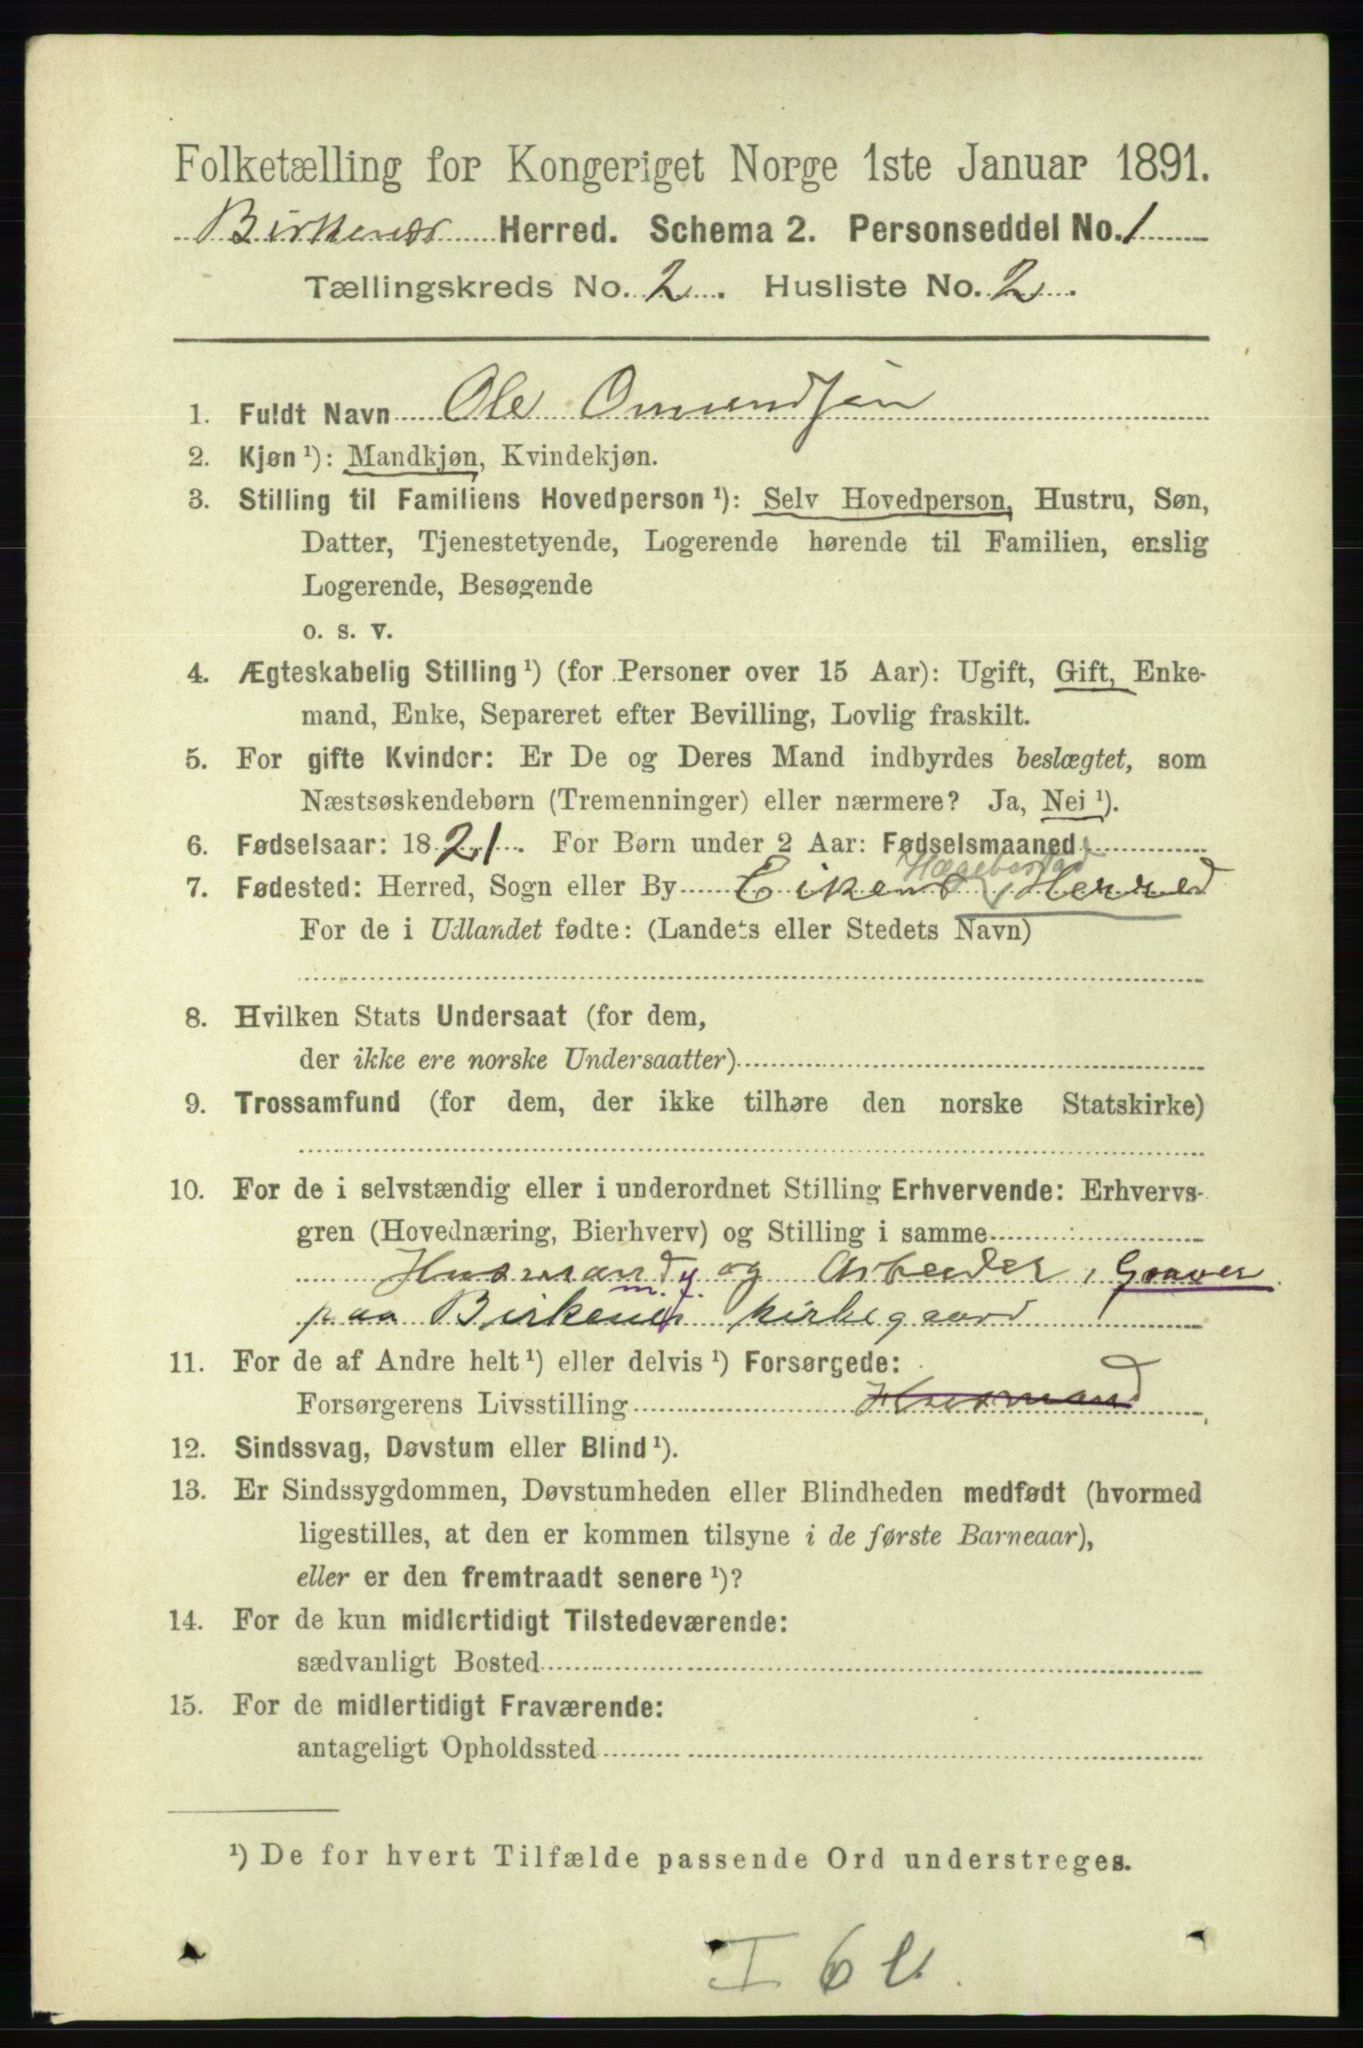 Folketælling for Kongeriget Norge 1ste Januar 1891.
Birkenes Herred. Schema 2. Personseddel No. 1
Tællingskreds No. 2. Husliste No. 2.
1. Fuldt Navn Ole Omundsen
2. Kjøn ¹): Mandkjøn, Kvindekjøn.
3. Stilling til Familiens Hovedperson ¹): Selv Hovedperson, Hustru, Søn,
Datter, Tjenestetyende, Logerende hørende til Familien, enslig
Logerende, Besøgende
o. s. v.
4. Ægteskabelig Stilling ¹) (for Personer over 15 Aar): Ugift, Gift, Enke-
mand, Enke, Separeret efter Bevilling, Lovlig fraskilt.
5. For gifte Kvinder: Er De og Deres Mand indbyrdes beslægtet, som
Næstsøskendebørn (Tremenninger) eller nærmere? Ja, Nei ¹).
6. Fødselsaar: 1821. For Børn under 2 Aar: Fødselsmaaned
Hægebostad
7. Fødested: Herred, Sogn eller By Eikens Herred
For de i Udlandet fødte: (Landets eller Stedets Navn)
8. Hvilken Stats Undersaat (for dem,
der ikke ere norske Undersaatter)
9. Trossamfund (for dem, der ikke tilhøre den norske Statskirke)
10. For de i selvstændig eller i underordnet Stilling Erhvervende: Erhvervs-
gren (Hovednæring, Bierhverv) og Stilling i samme
Husmand og Arbeider, Graver
m. j.
paa Birkenes kirkegaard
11. For de af Andre helt ¹) eller delvis ¹) Forsørgede:
Forsørgerens Livsstilling Husmand
12. Sindssvag, Døvstum eller Blind ¹).
13. Er Sindssygdommen, Døvstumheden eller Blindheden medfødt (hvormed
ligestilles, at den er kommen tilsyne i de første Barneaar),
eller er den fremtraadt senere ¹)?
14. For de kun midlertidigt Tilstedeværende:
sædvanligt Bosted
15. For de midlertidigt Fraværende:
antageligt Opholdssted
¹) De for hvert Tilfælde passende Ord understreges.
I 6